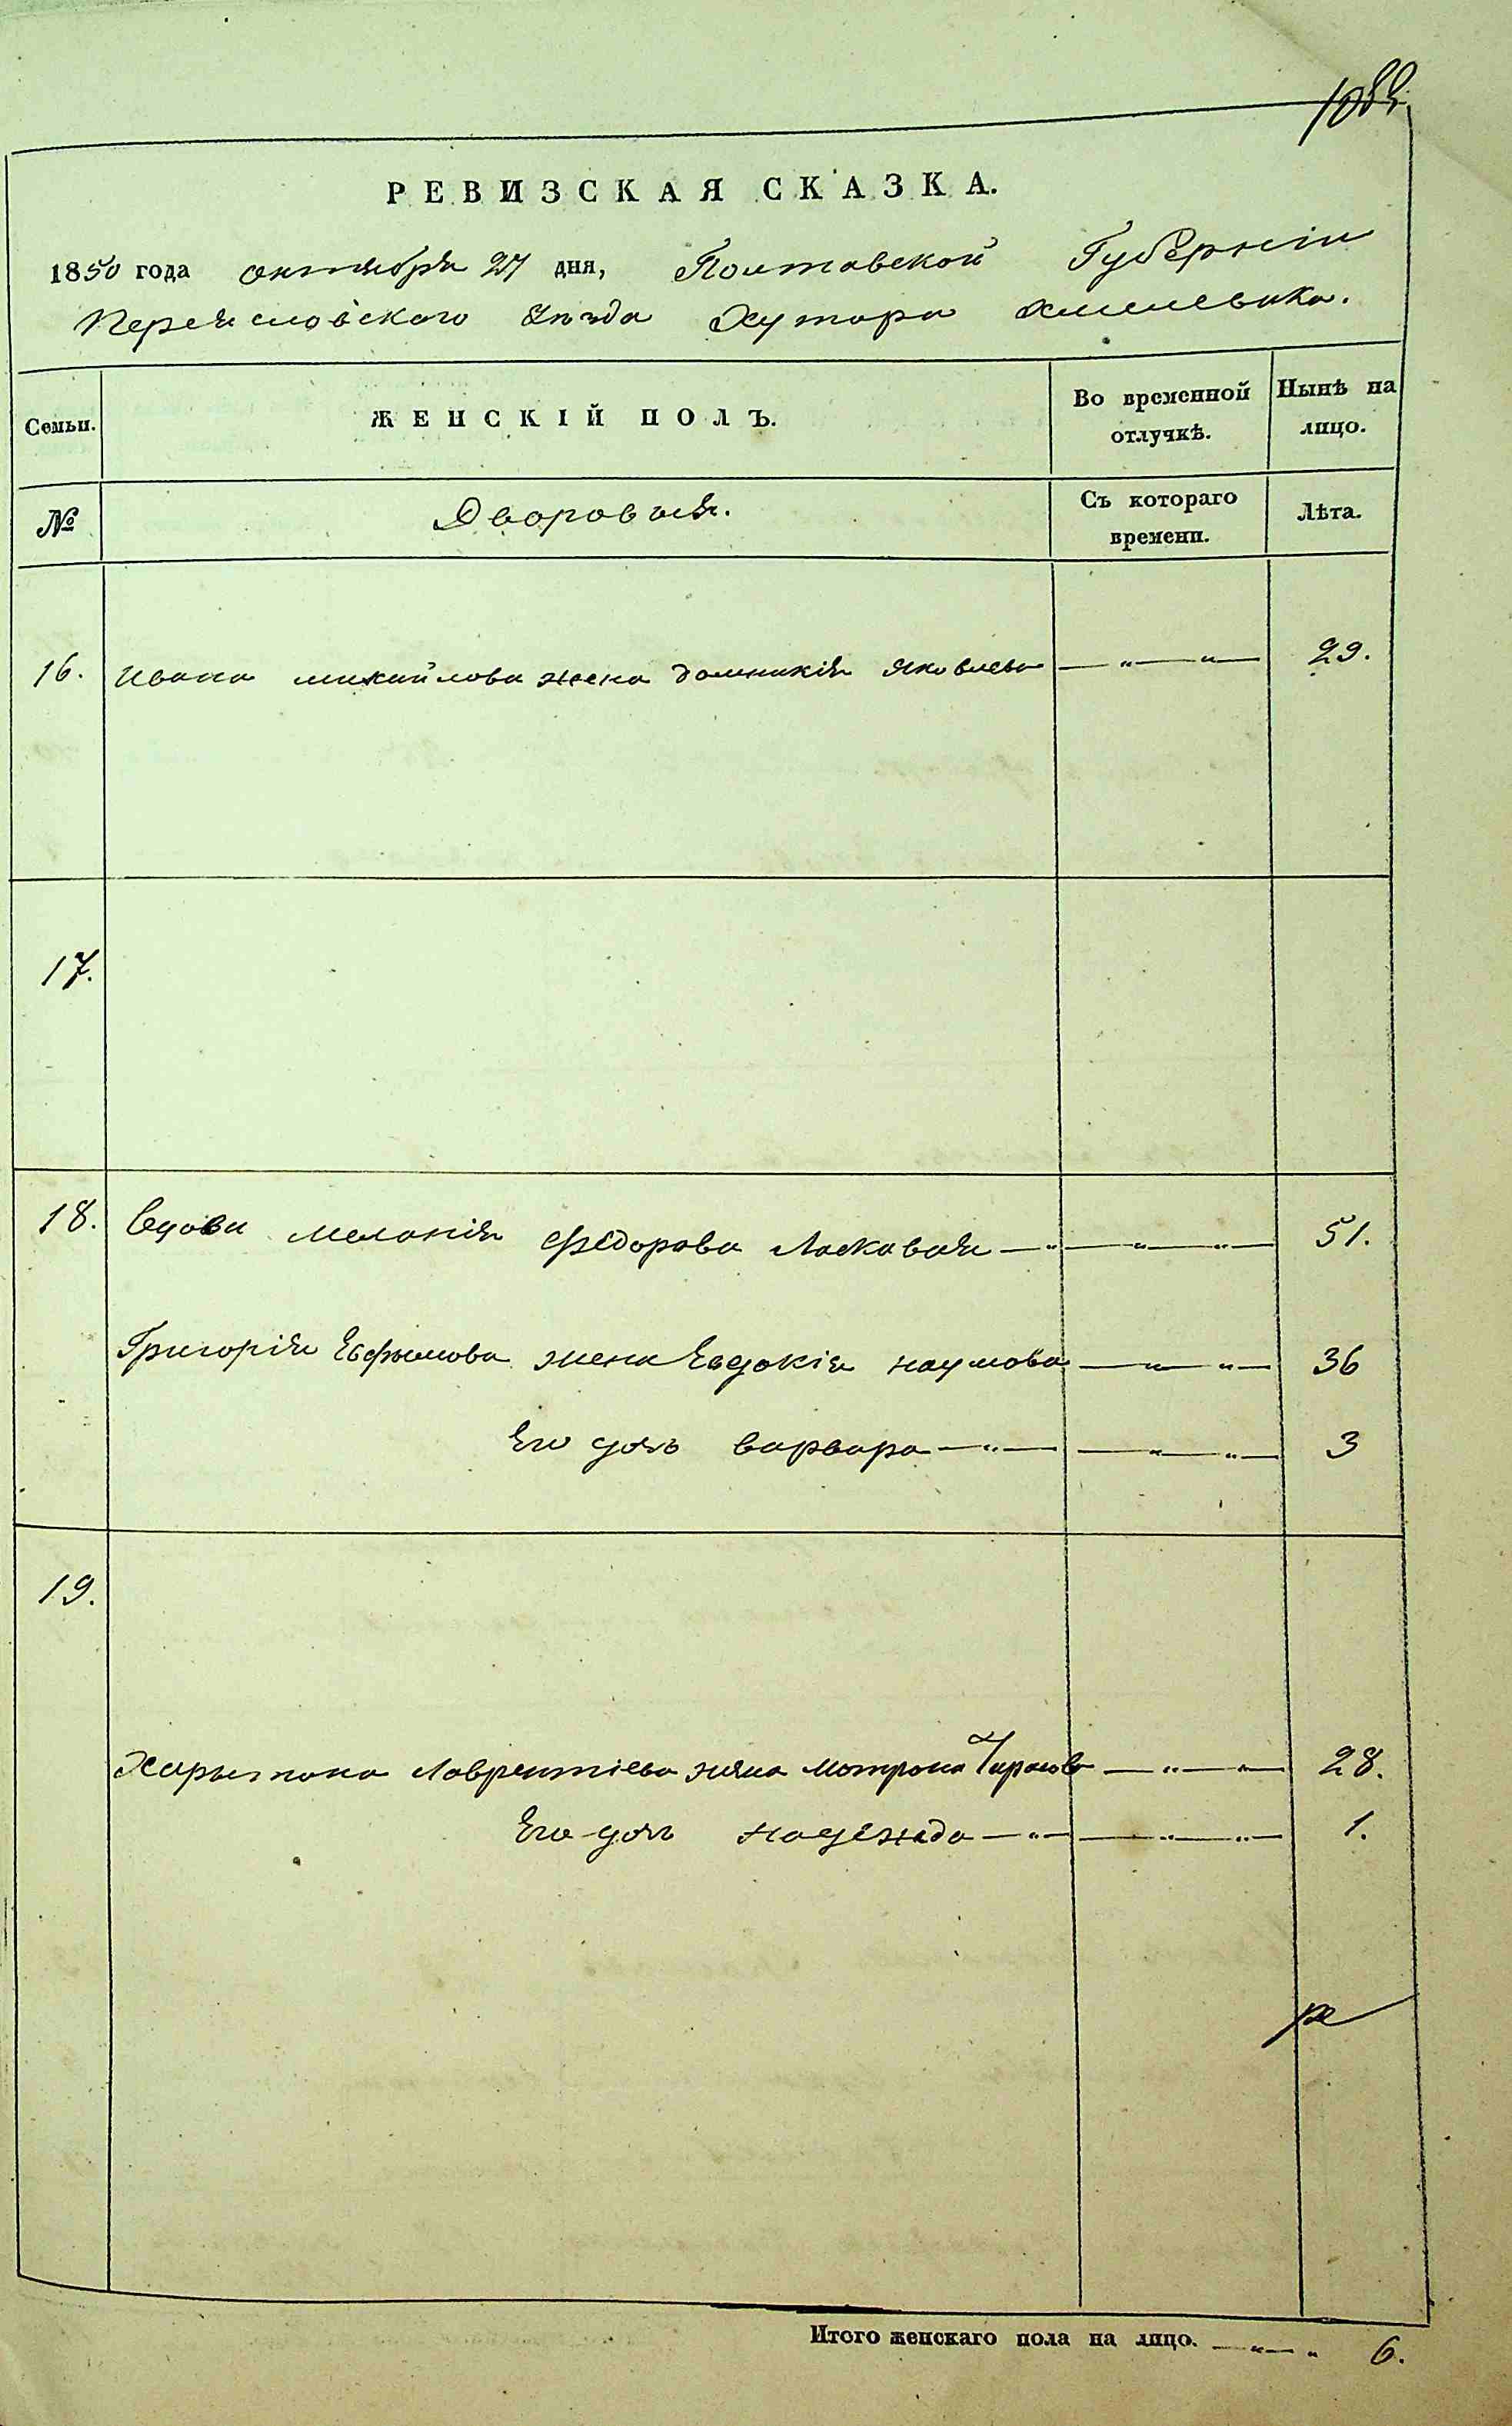 РЕВИЗСКАЯ СКАЗКА.
1850 года октября 27 дня, Полтавской Губерніи
Переяславского Уѣзда Хутора
Семьи.
ЖЕНСКІЙ ПОЛЪ.
Во временной отлучкѣ.
Нынѣ на лицо.
№
Дворовыя.
Съ котораго времени.
Лѣта.
16. Ивана михайлова жена домникія Яковлева — „ — „ — 29.
17.
18. Вдова меланія Федорова Ласкавая — „ — „ — „ — 51.
Григорія Евфимова жена Евдокія наумова — „ — „ — 36
Его дочь варвара — „ — — „ — „ — 3
19.
Харытона Лаврентіева жена мотрона Тарасова — „ — „ — 28.
Его дочь надежда — „ — — „ — „ — 1.
Итого женскаго пола на лицо. — „ — „ 6.